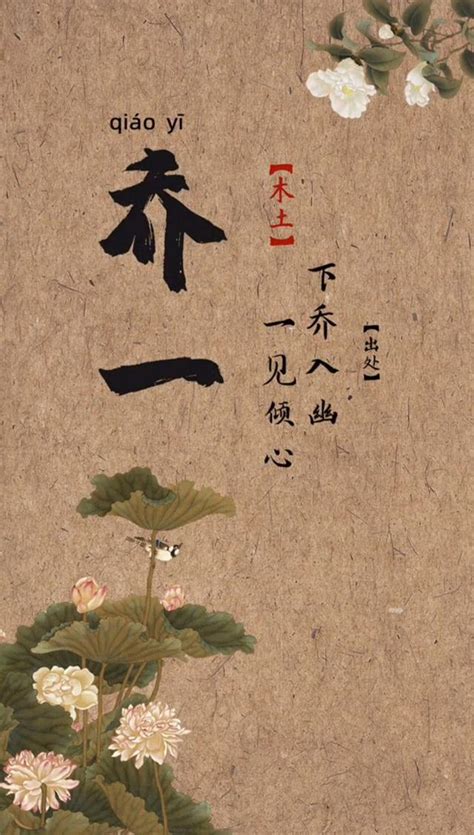 qiáo yī
乔一
【木土】
【出处】
下乔入幽
一见倾心